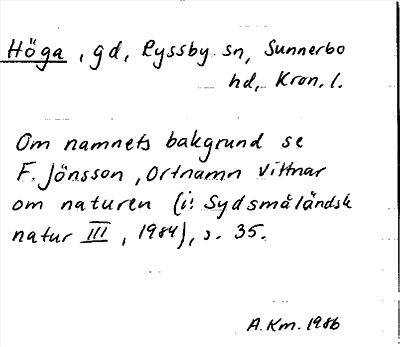 Höga, gd, Ryssby sn, Sunnerbo
hd, Kron. l.
Om namnets bakgrund se
F. Jönsson, Ortnamn vittnar
om naturen (i: Sydsmåländsk
natur III, 1984), s. 35.
A.Km. 1986